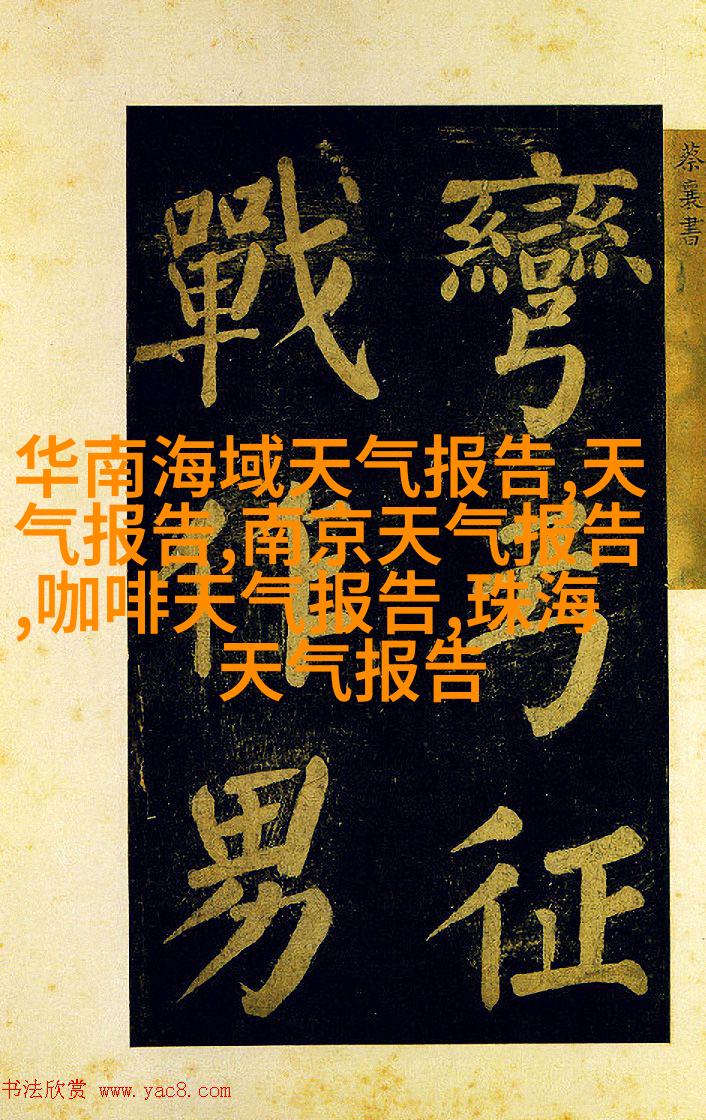 蔡襄書
彎弓征
戰男
华南海域天气报告,天
气报告,南京天气报告
,咖啡天气报告,珠海
天气报告
书法欣赏 www.yac8.com